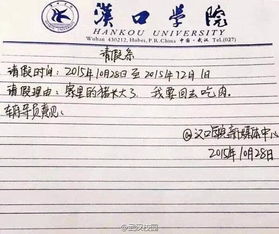 漢口學院
HANKOU UNIVERSITY
Wuhan 430212, Hubei, P.R.China 中国·武汉 Tel.(027)
请假条
请假时间：2015年10月28日至2015年12月1日
请假理由：家里的猪长大了，我要回去吃肉。
辅导员意见：
@汉口学院新媒体中心
2015年10月28日
@武汉校园